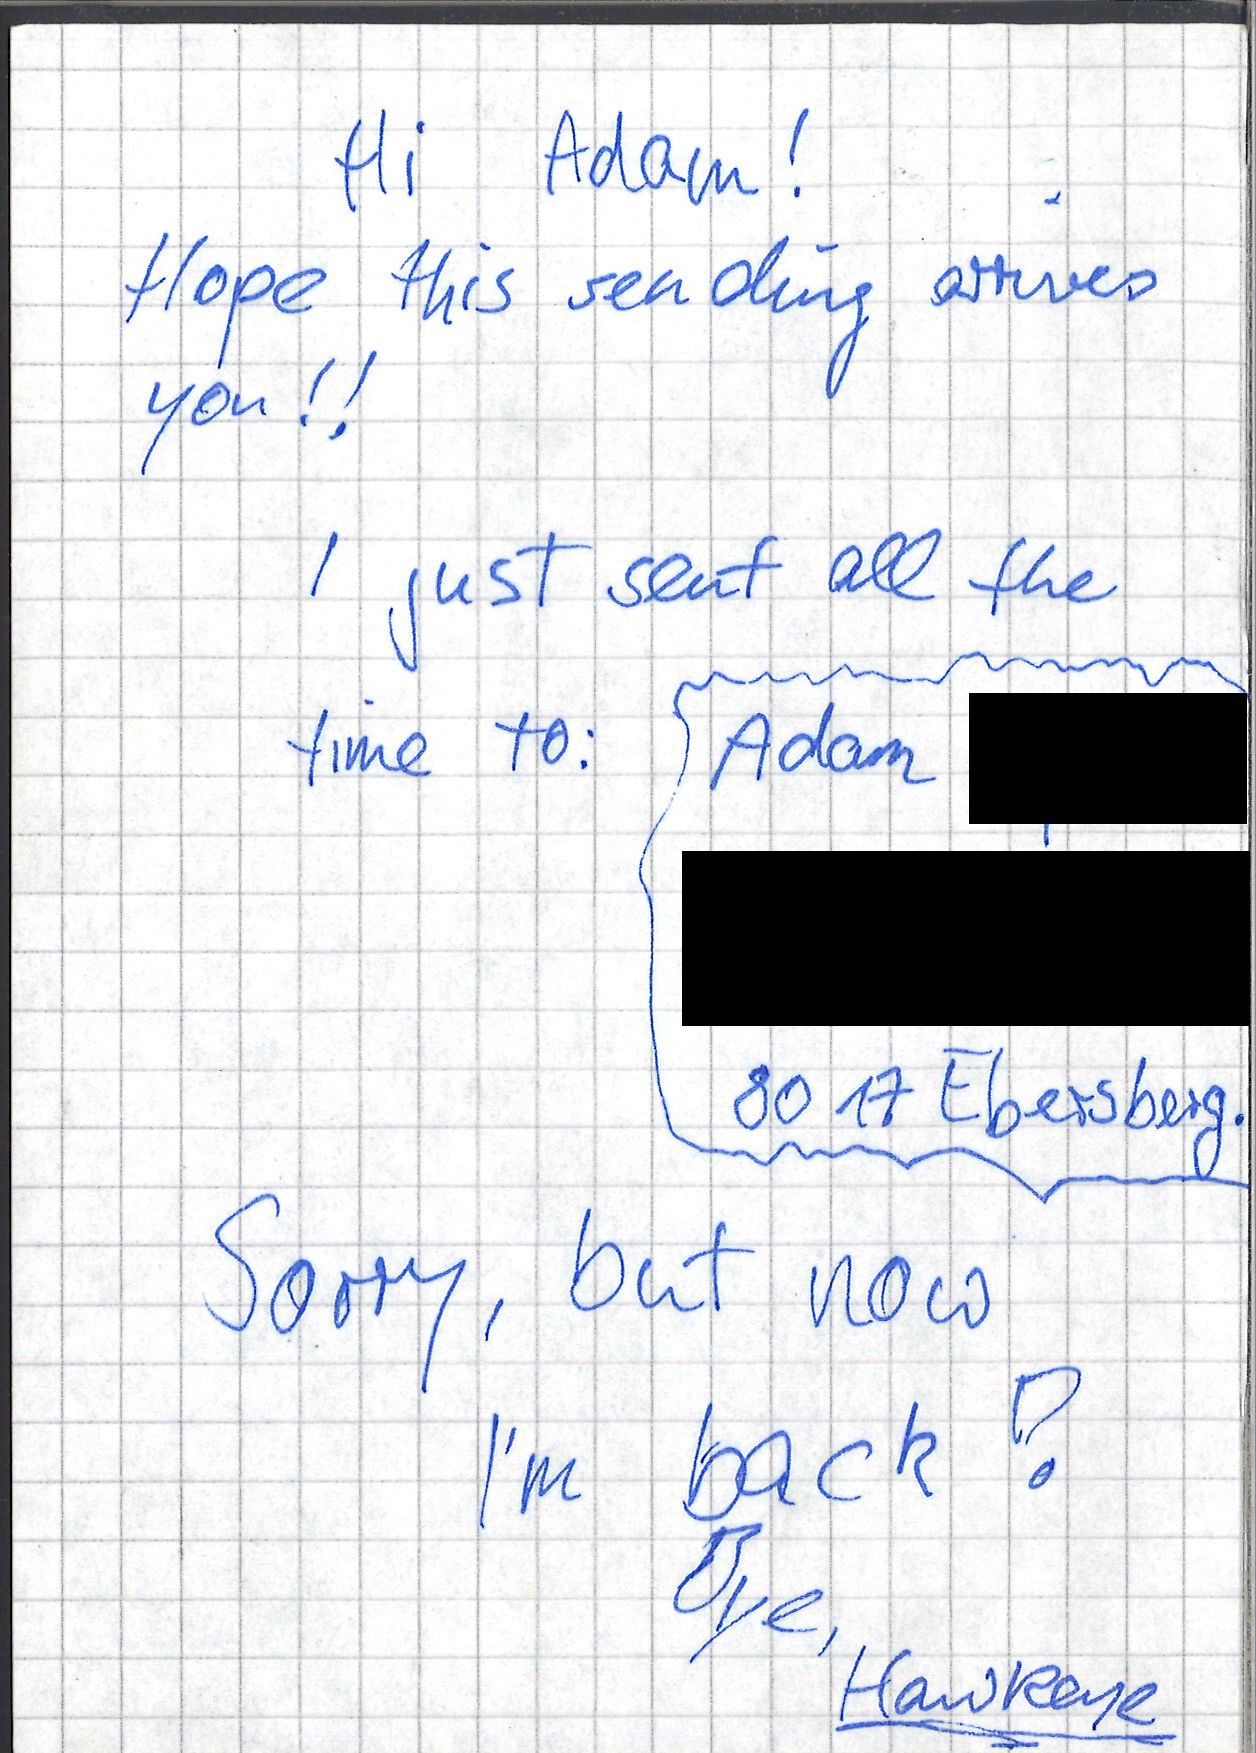 Hi Adam!
Hope this sending arrives
you!!
I just sent all the
time to: Adam
8017 Ebersberg.
Sorry, but now
I'm back!
Bye,
Hawkeye